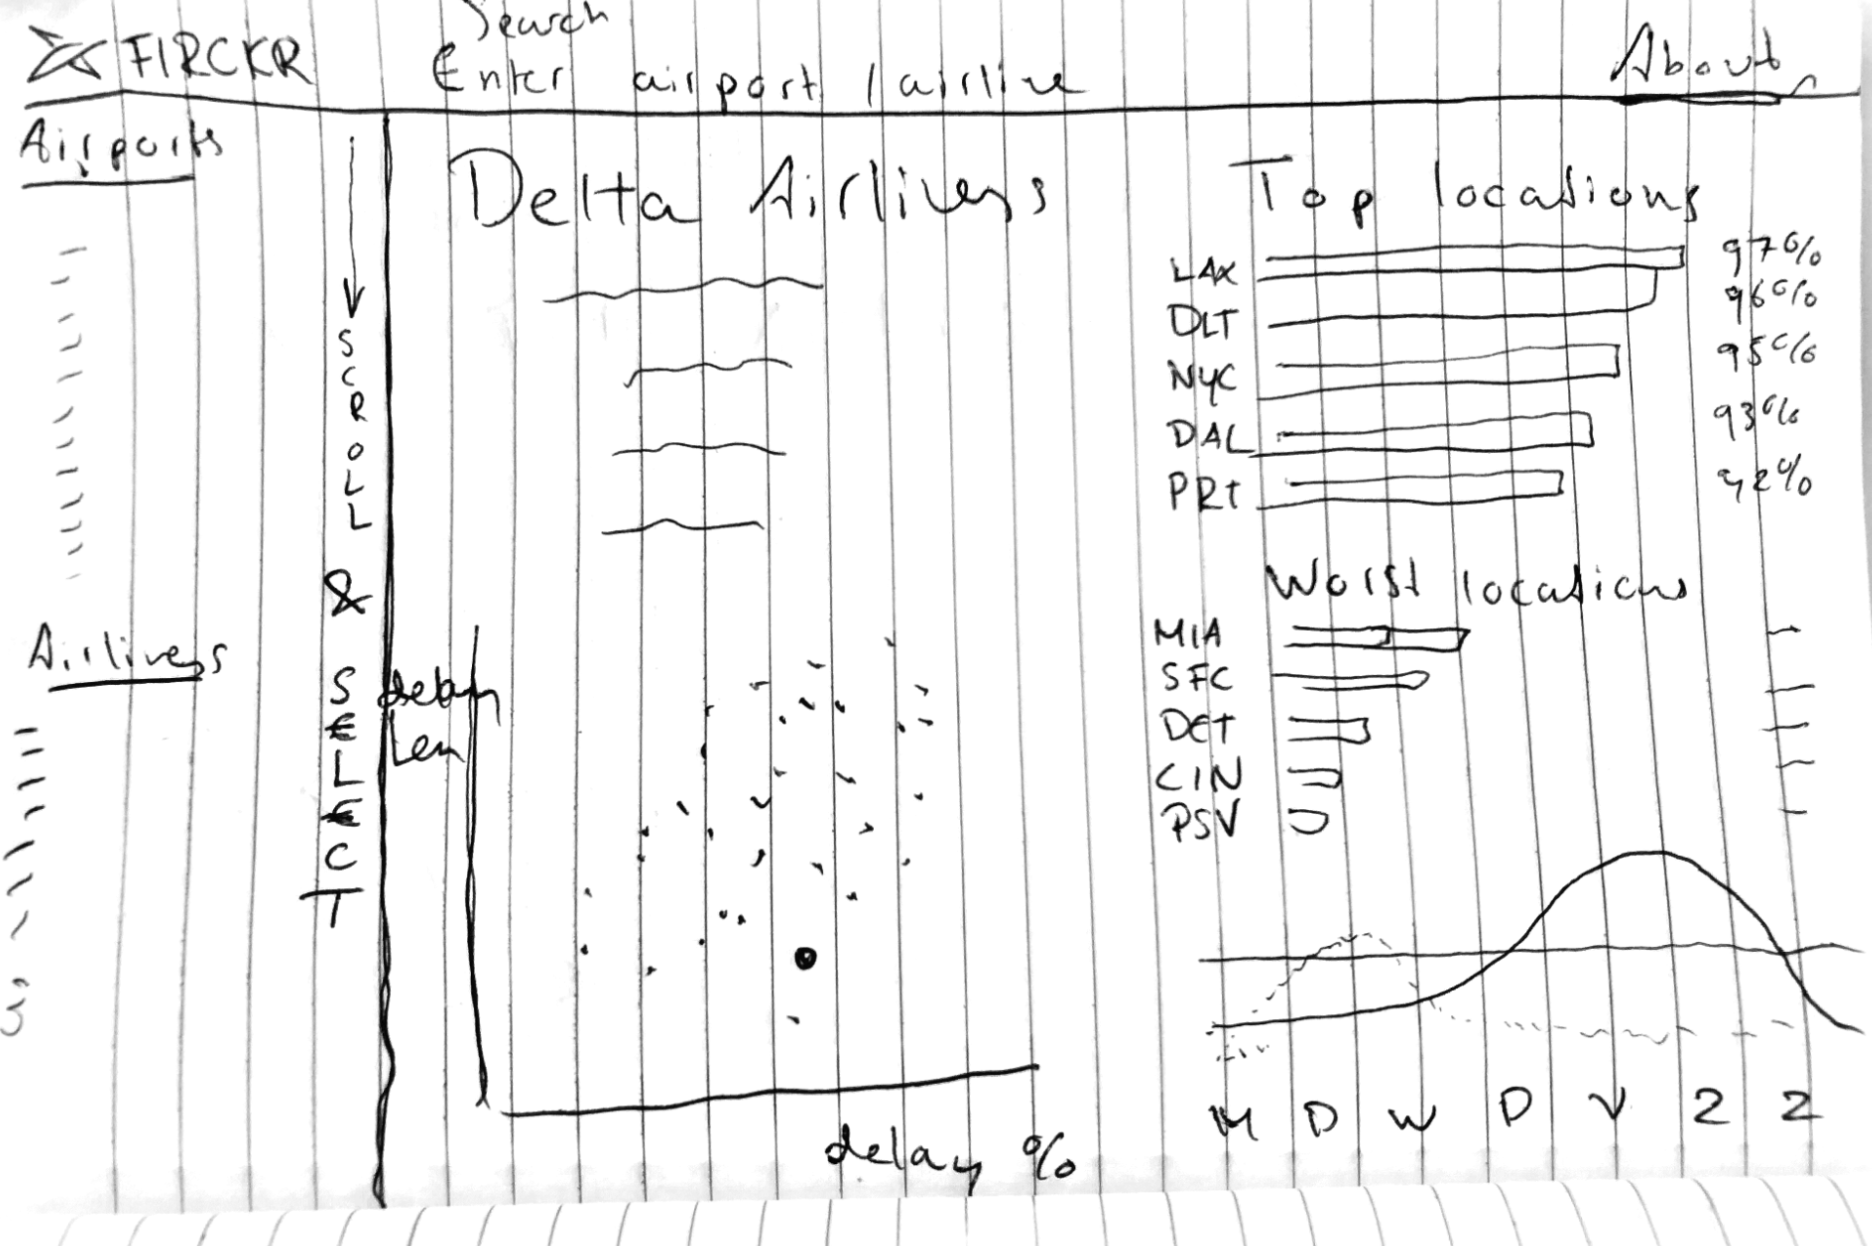 FIRCKR
Search
Enter airport / airline
About
Airports
SCROLL
&
SELECT
Airliness
Delta Airliness
delay
len
delay %
Top locations
LAX 97%
DLT 96%
NYC 95%
DAL 93%
PRT 92%
Worst locations
MIA
SFC
DET
CIN
PSV
M D W D V Z Z